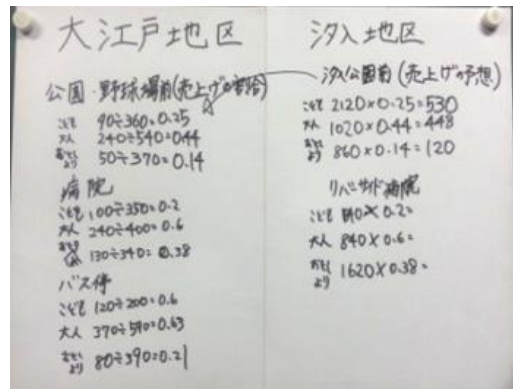 大江戸地区
公園・野球場前(売上げの割合)
こども 90÷360=0.25
大人 240÷540=0.44
おとしより 50÷370=0.14
病院
こども 100÷350=0.2
大人 240÷400=0.6
おとしより 130÷340=0.38
バス停
こども 120÷200=0.6
大人 370÷590=0.63
おとしより 80÷390=0.21
汐入地区
汐入公園前(売上げの予想)
こども 2120×0.25=530
大人 1020×0.44=448
おとしより 860×0.14=120
リバーサイド病院
こども ×0.2=
大人 840×0.6=
おとしより 1620×0.38=